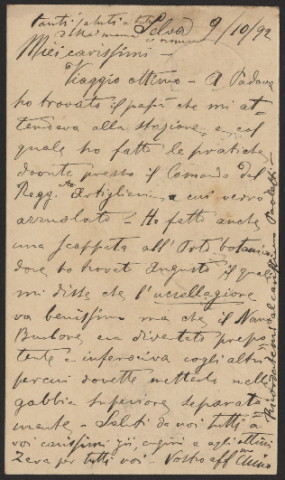 tanti saluti a tutti
Selva 9/10/92
Miei carissimi -
Viaggio ottimo - A Padova
ho trovato il papà che mi at-
tendeva alla stazione, e col
quale ho fatto le pratiche
dovute presso il Comando del
Regg.to Artiglieria a cui verrò
arruolato - Ho fatto anche
una scappata all'Orto botanico
dove ho trovat Augusto il quale
mi disse che l'uccellagiore
va benissimo ma che il Nano
Burlone era diventato prepo-
tente e inferociva cogli altri
percui dovette metterlo nella
gabbia superiore separata-
mente - Saluti da voi tutti a
voi carissimi zii, cugini e agli ottimi
Zeva per tutti voi - Vostro aff